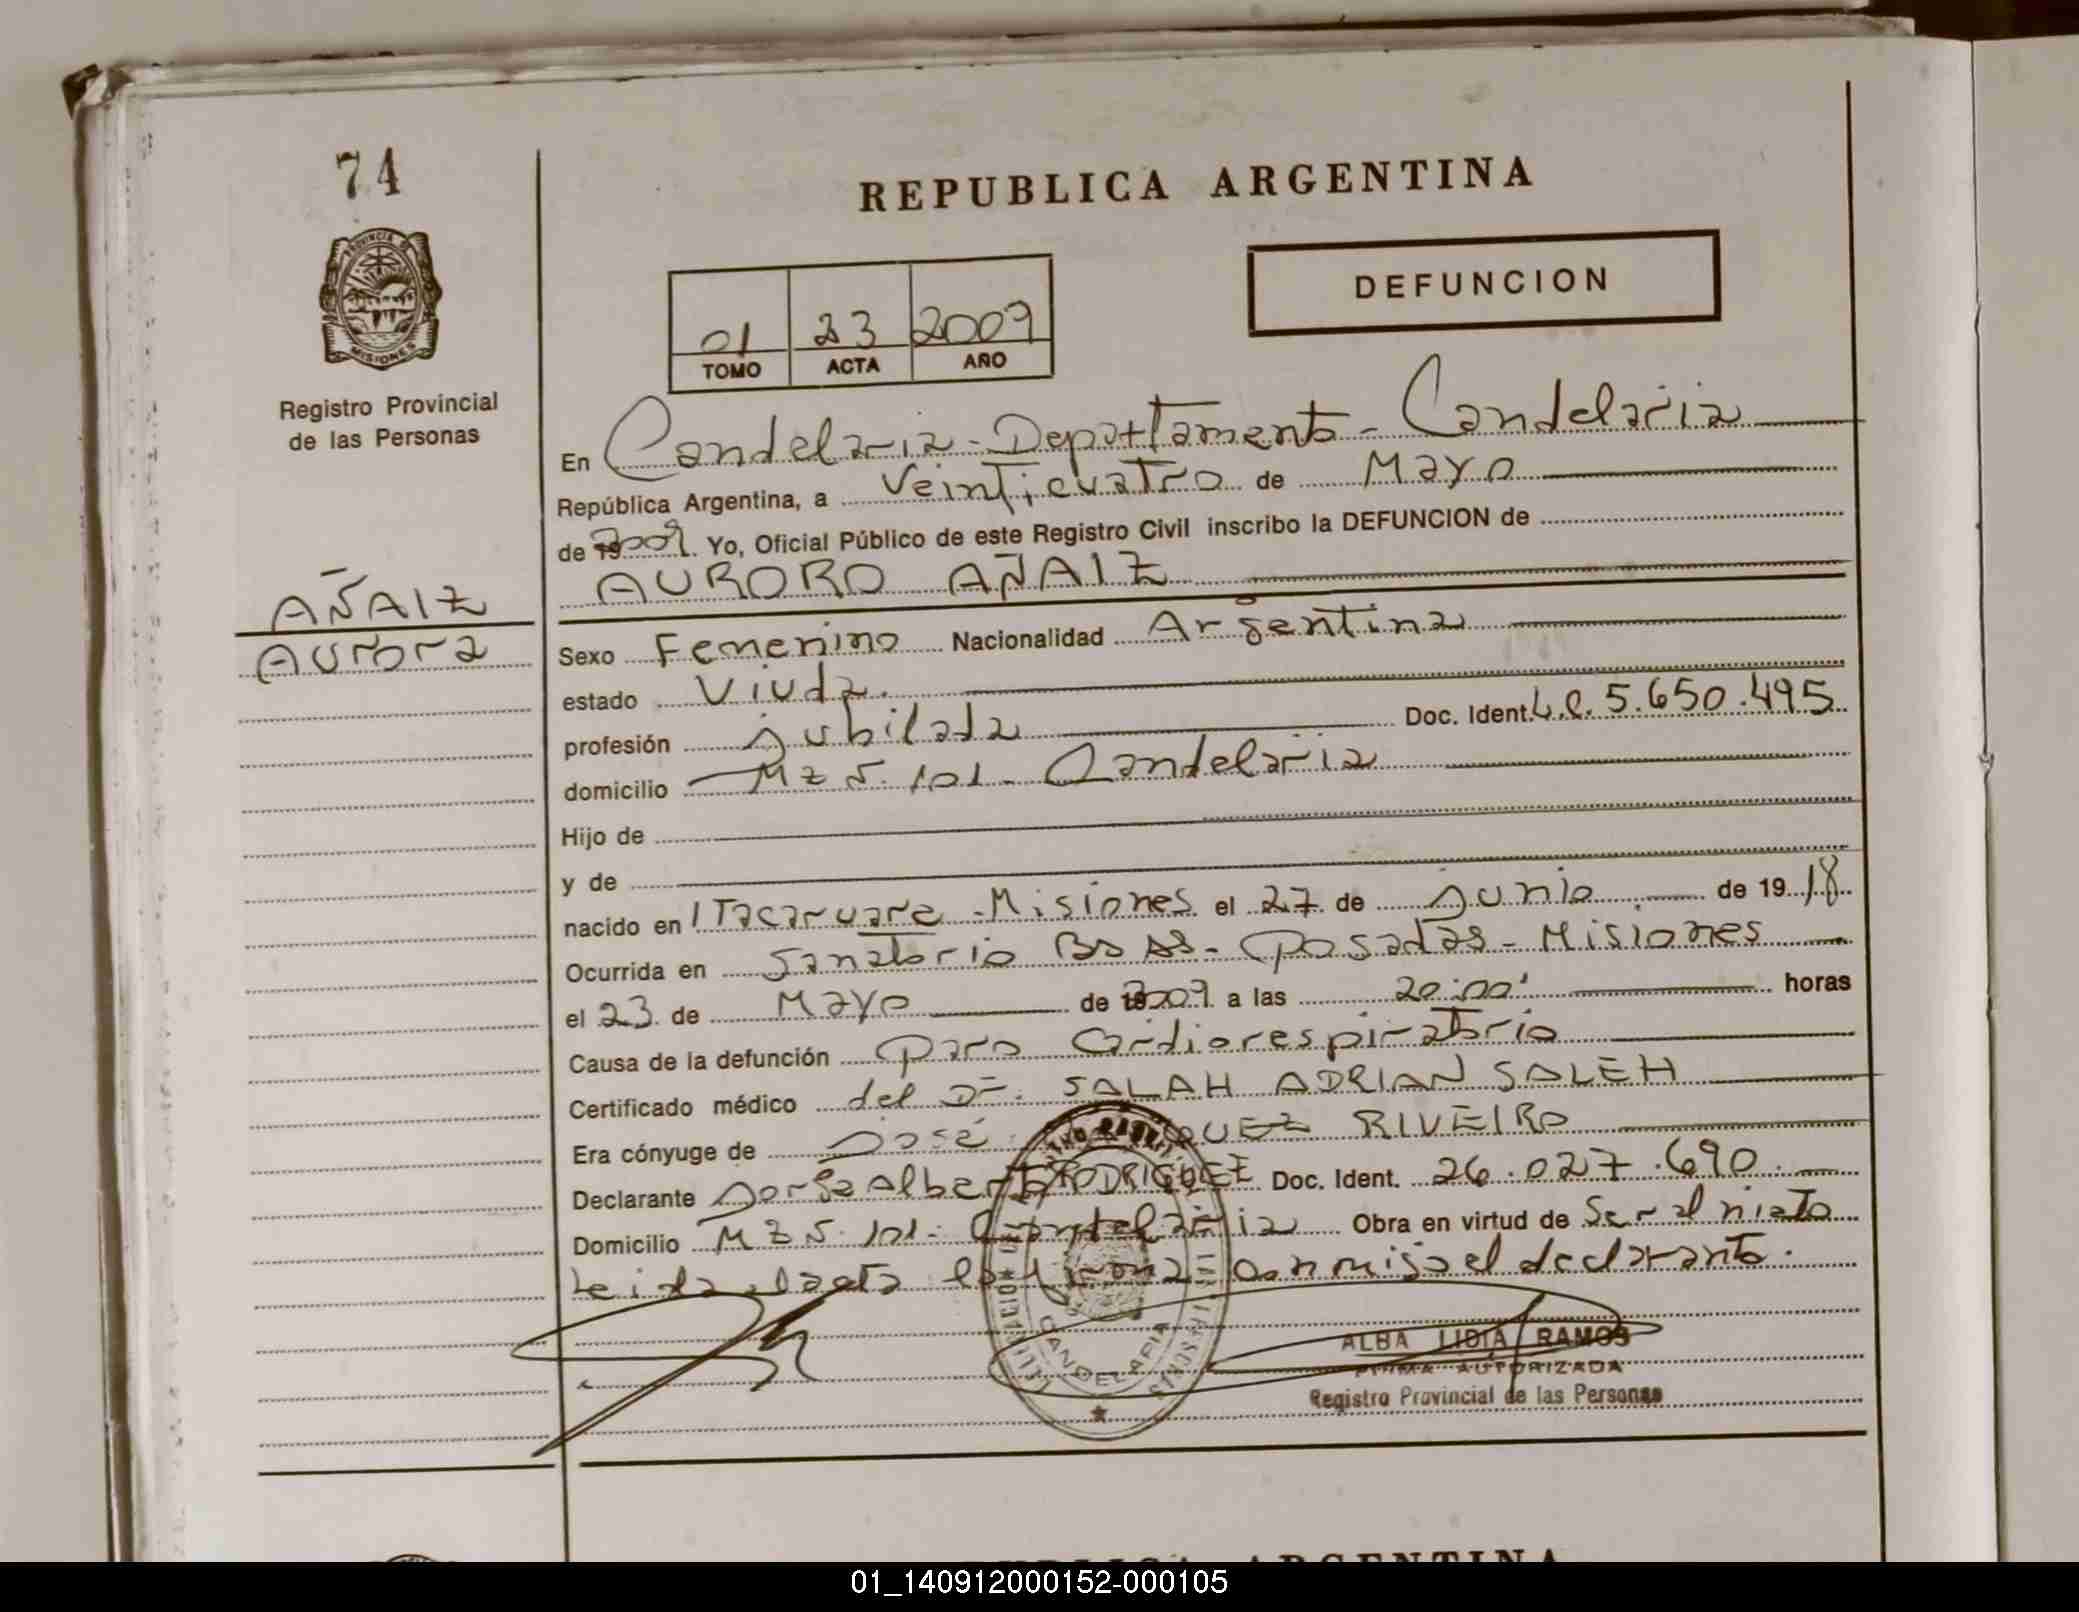 74
REPUBLICA ARGENTINA
PROVINCIA DE MISIONES
Registro Provincial
de las Personas
DEFUNCION
01 23 2009
TOMO ACTA AÑO
En Candelaria - Departtamento - Candelaria
República Argentina, a Veinticuatro de Mayo
de 2009. Yo, Oficial Público de este Registro Civil inscribo la DEFUNCION de
AURORO AÑAIZ
AÑAIZ
Aurora
Sexo Femenino Nacionalidad Argentina
estado Viuda.
profesión jubilada Doc. Ident. L.C. 5.650.495
domicilio Mz 5. 101 - Candelaria
Hijo de
y de
nacido en Itacaruare - Misiones el 27 de junio de 19 18
Ocurrida en Sanatorio Bs As - Posadas - Misiones
el 23 de Mayo de 2009 a las 20:00' horas
Causa de la defunción Paro Cardiorespiratorio
Certificado médico del Dr. SALAH ADRIAN SALEH
Era cónyuge de José RIVEIRO
Declarante Jorge Alberto RODRIGUEZ Doc. Ident. 26.027.690.
Domicilio Mz 5. 101 - Candelaria Obra en virtud de Ser el nieto
Leida el acta la firma conmigo el declarante.
CANDELARIA
ALBA LIDIA RAMOS
FIRMA AUTORIZADA
Registro Provincial de las Personas
REPUBLICA ARGENTINA
01_140912000152-000105